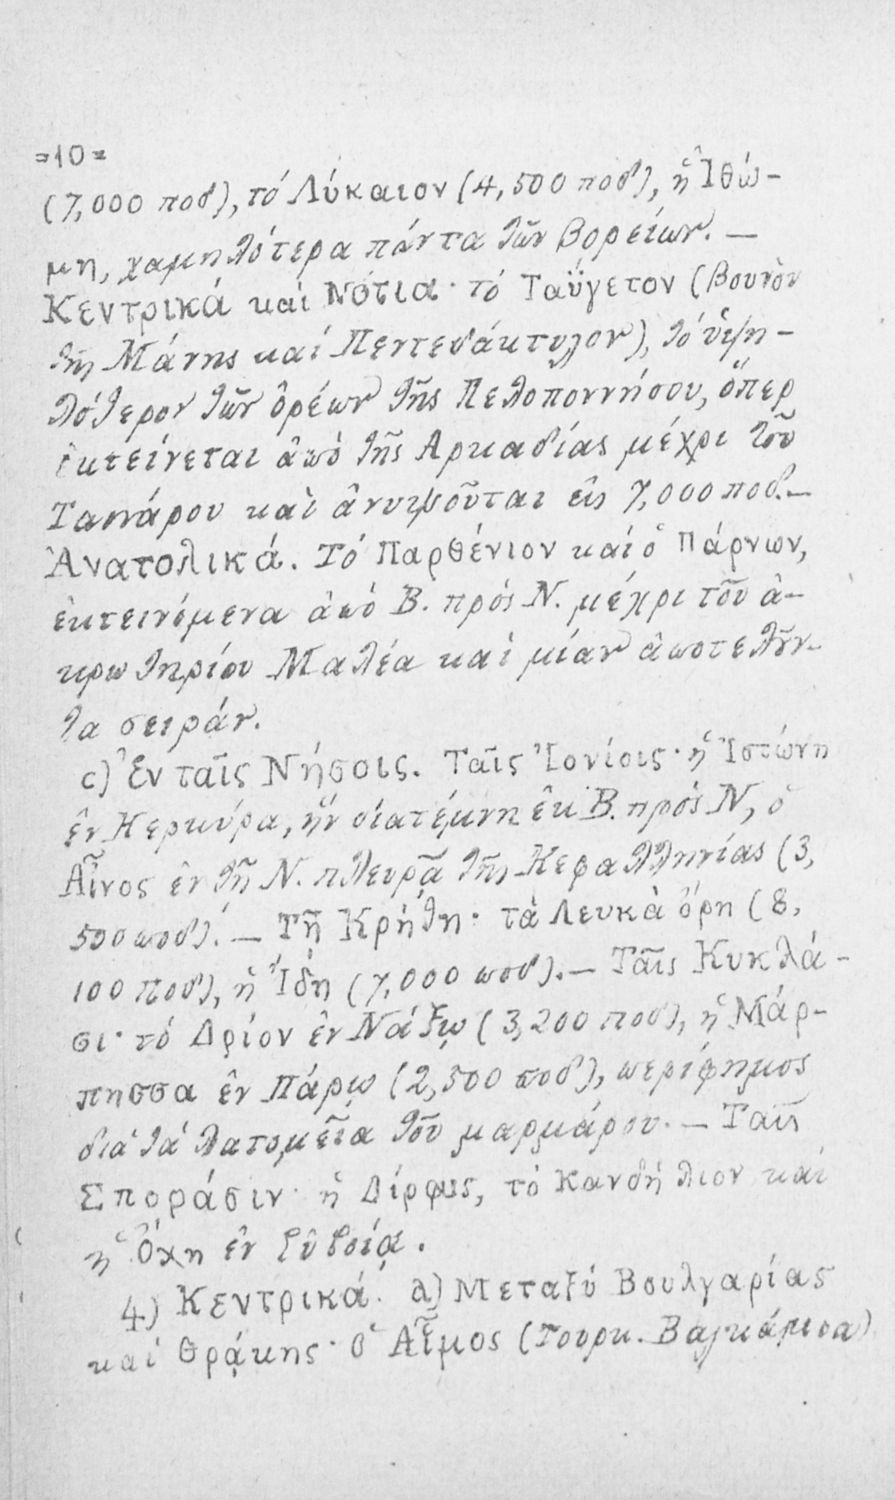 =10=
(7,000 ποδ), τό Λύκαιον (4,500 ποδ), ἡ Ἰθώ-
μη, χαμηλότερα πάντα τῶν βορείων. —
Κεντρικά καί Νότια· τό Ταΰγετον (βουνὸν
τῆς Μάνης καί Πενταδάκτυλον), τό ὑψη-
λότερον τῶν ὀρέων τῆς Πελοποννήσου, ὅπερ
ἐκτείνεται ἀπό τῆς Αρκαδίας μέχρι τοῦ
Ταινάρου καὶ ἀνυψοῦται εἰς 7,000 ποδ.—
Ἀνατολικά. Τό Παρθένιον καί ὁ Πάρνων,
ἐκτεινόμενα ἀπό Β. πρός Ν. μέχρι τοῦ ἀ-
κρωτηρίου Μαλέα καὶ μίαν ἀποτελοῦν-
τα σειράν.
c) Ἐν ταῖς Νήσοις. Ταῖς Ἰονίοις· ἡ Ἰστώνη
ἐν Κερκύρα, ἥν διατέμνη ἐκ Β. πρός Ν, ὁ
Αἶνος ἐν τῆ Ν. πλευρᾶ τῆς Κεφαλληνίας (3,
500 ποδ). — Τῆ Κρήτη· τὰ Λευκὰ ὄρη (8,
100 ποδ), ἡ Ἴδη (7,000 ποδ). — Ταῖς Κυκλά-
σι· τό Δρίον ἐν Νάξῳ (3,200 ποδ), ἡ Μάρ-
πησσα ἐν Πάρῳ (2,500 ποδ), περίφημος
διά τά λατομεῖα τοῦ μαρμάρου. — Ταῖς
Σποράσιν· ἡ Δίρφυς, τό Κανδήλιον καί
ἡ Ὄχη ἐν Εὐβοίᾳ.
4) Κεντρικά. a) Μεταξύ Βουλγαρίας
καί Θρᾴκης· ὁ Αἷμος (Τουρκ.